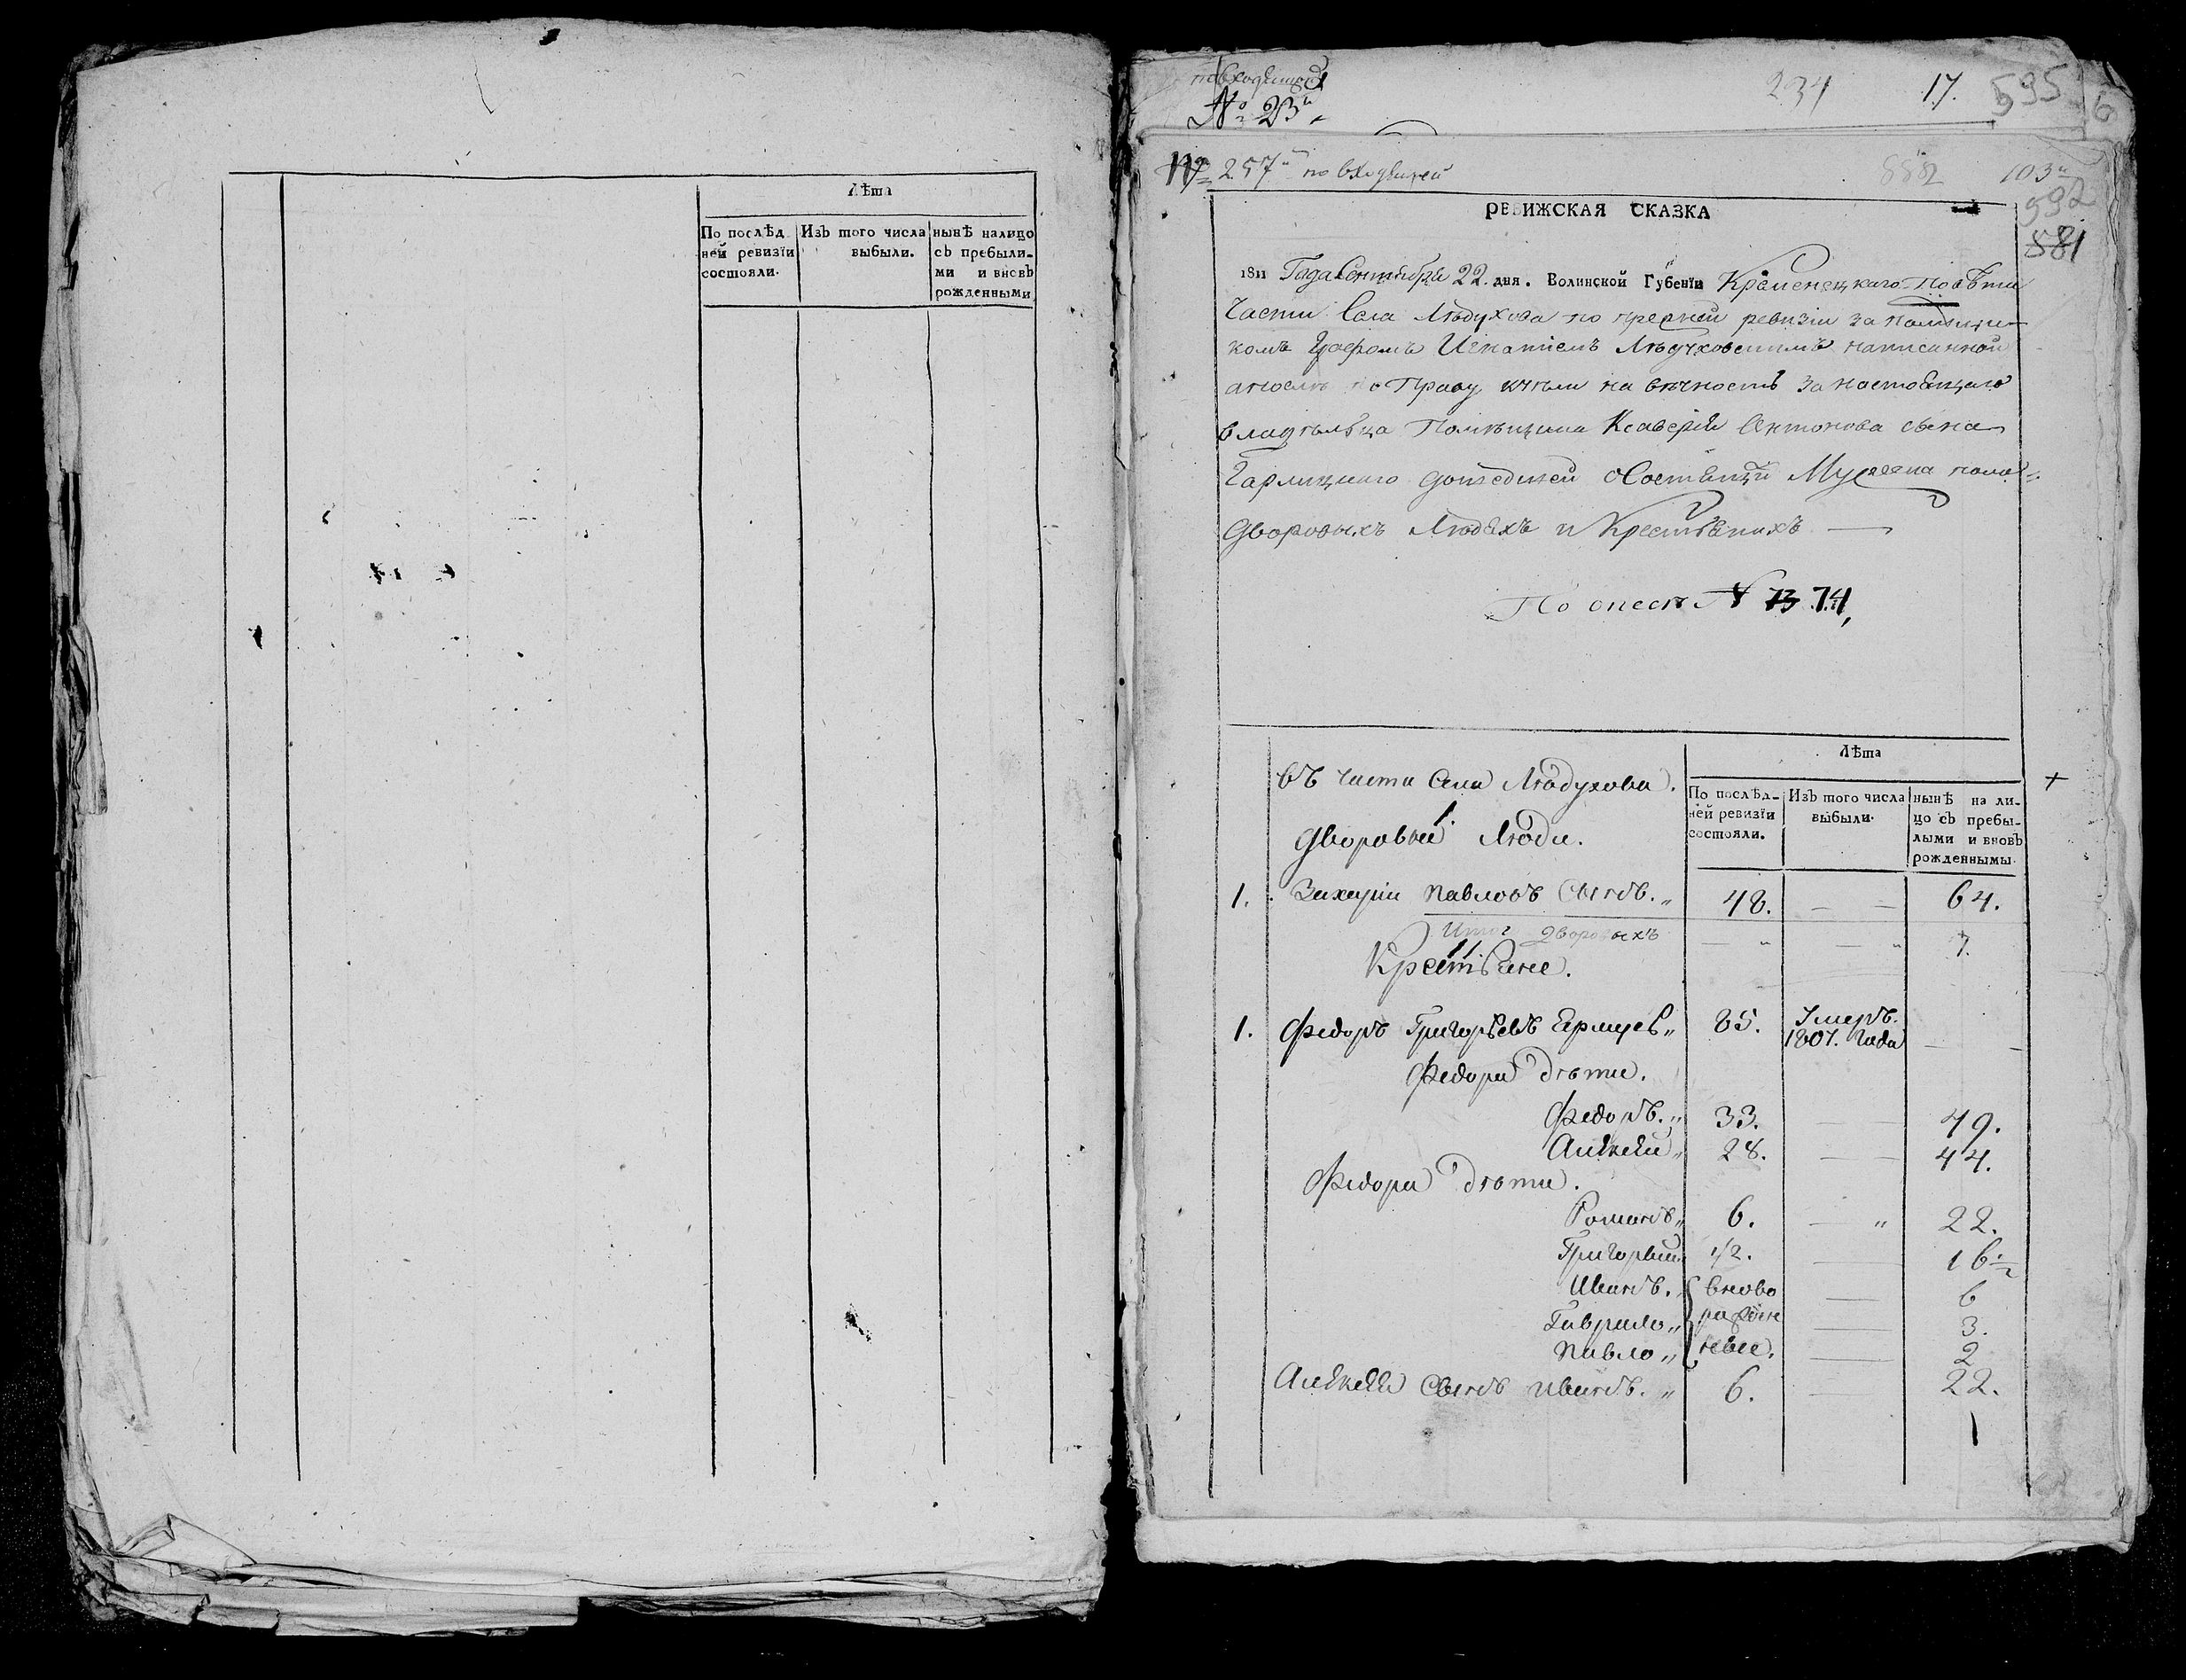 Лѣта
По послѣд
ней ревизїи
состояли.
Изъ того числа
выбыли.
нынѣ налицо
съ пребыли-
ми и вновь
рожденными
по входящей
№ 23
234 17. 595 6
№ 257 по входящей 882 103
592
581
РЕВИЖСКАЯ СКАЗКА
1811 Года Сентября 22 дня. Волинской Губенїи Кременецкаго Повѣта
Части Села Лѣдухова по прежней ревизіи за помѣщи-
комъ Графомъ Игнатіемъ Лѣдуховскимъ написанной
а после по Праву купли на вѣчность за настоящаго
владѣльца Помѣщика Ксаверія Антонова сына
Гарлицкаго дошедшей о состоящихъ Мужеска пола
Дворовыхъ Людяхъ и Крестьянахъ
По описи № 73 74,
въ части Села Лѣдухова.
1.
Дворовыи Люди.
Лѣта
По послѣд-
ней ревизїи
состояли.
Изъ того числа
выбыли.
нынѣ на ли-
цо съ пребы-
лыми и вновь
рожденнымы.
+
1. Захарій Павловъ Сынъ. 48. — — 64.
Итог дворовыхъ — — 1.
11
Крестьяне.
1. Федоръ Григорьевъ 85. Умеръ.
1807. Года —
Федора дѣти.
Федоръ. 33. — 49.
Алексѣй 28. — 44.
Федора дѣти.
Романъ 6. — 22.
Григорій 1/2. — 16 1/2
Иванъ. вново — 6
Гаврило рожден — 3.
Павло ные. — 2
Алексѣя Сынъ Иванъ. 6. — 22.
1